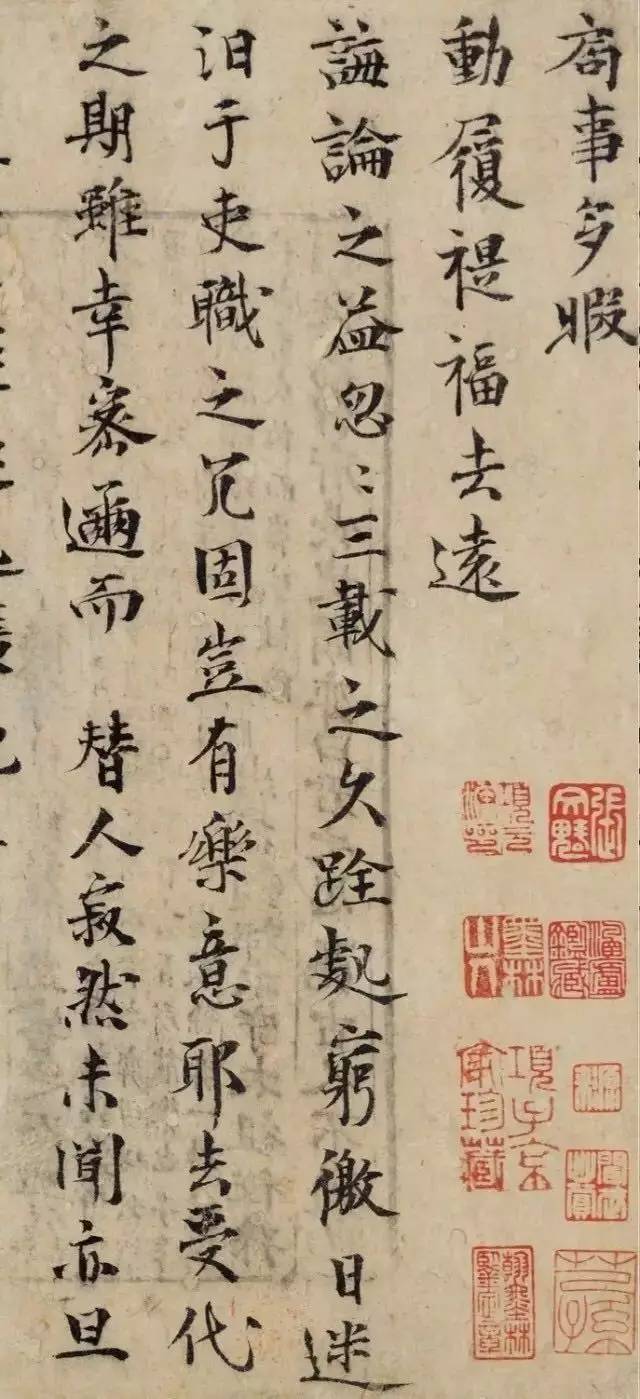 局事多暇
動履禔福去遠
誨論之益忽〻三載之久跧處窮徼日迷
汩于吏職之冗固豈有樂意耶去受代
之期雖幸密邇而 替人寂然未聞亦旦
張文魁
項子京家珍藏
墨林山人